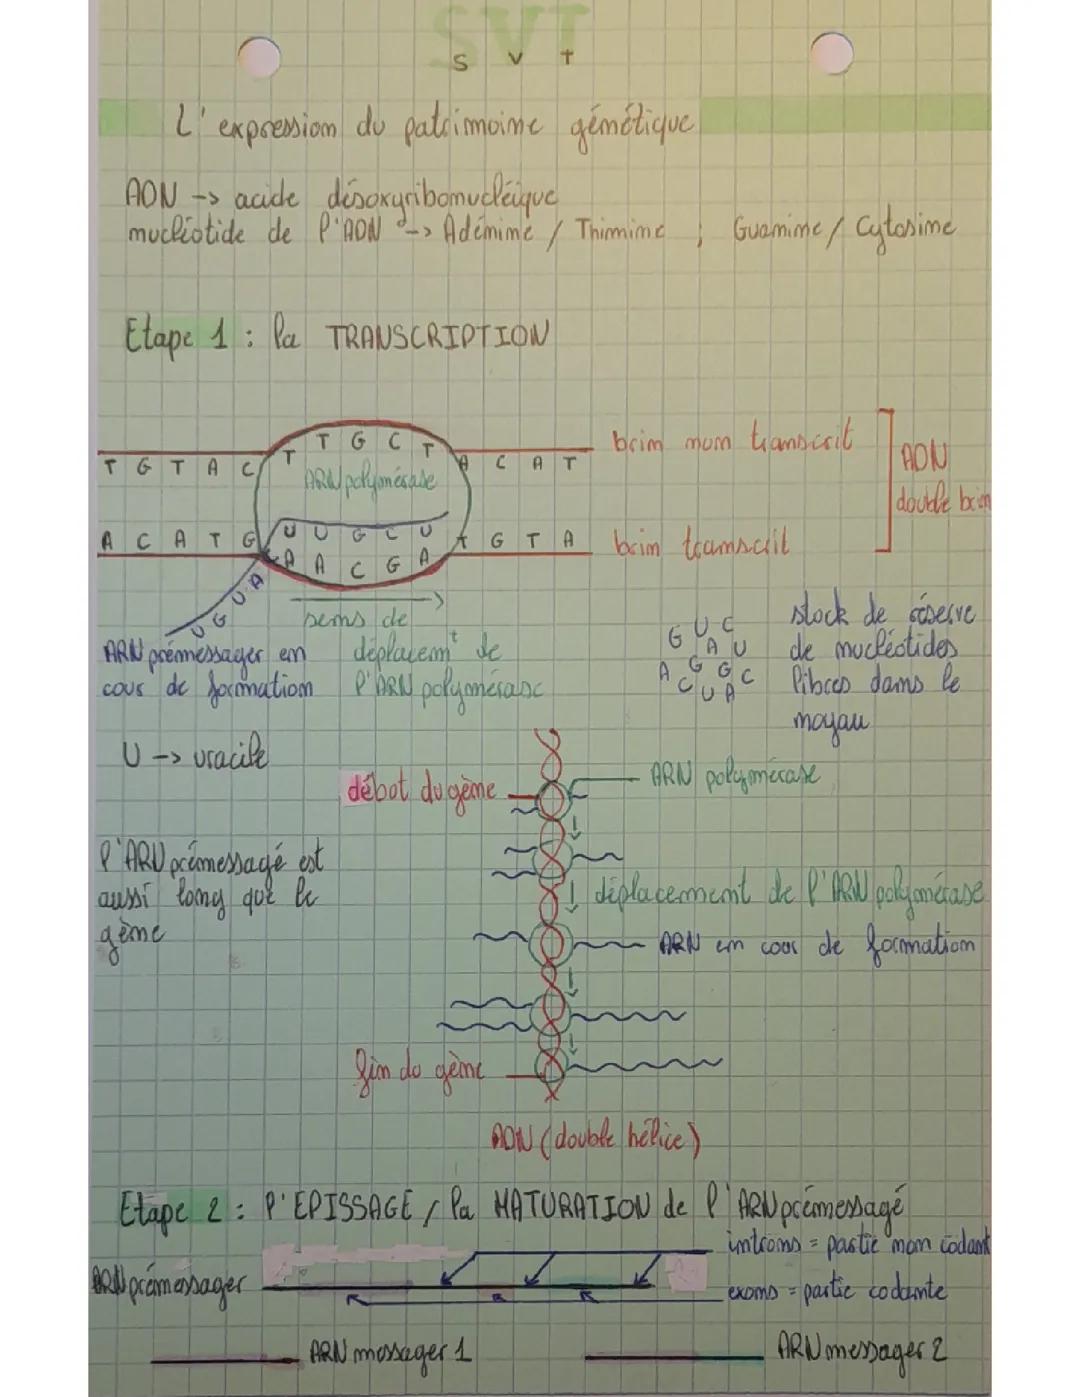 SVT
S V T
L'expression du patrimoine génétique
ADN -> acide désoxyribonucléique
nucléotide de l'ADN -> Adénine / Thimine ; Guanine / Cytosine
Etape 1 : la TRANSCRIPTION
T G T A C T T G C T A C A T
brin non transcrit
ARN polymérase
ADN
double brin
U U G C U
A C A T G A A C G A T G T A
brin transcrit
U G U A
sens de
déplacem^t de
l'ARN polymérase
ARN prémessager en
cour de formation
G U C
A U
A G G C
C U A
stock de réserve
de nucléotides
libres dans le
noyau
U -> uracile
début du gène
ARN polymérase
l'ARN prémessagé est
aussi long que le
gène
déplacement de l'ARN polymérase
ARN en cour de formation
fin du gène
ADN (double hélice)
Etape 2 : l'EPISSAGE / la MATURATION de l'ARN prémessagé
introns = partie non codant
ARN prémessager
exons = partie codante
ARN messager 1
ARN messager 2